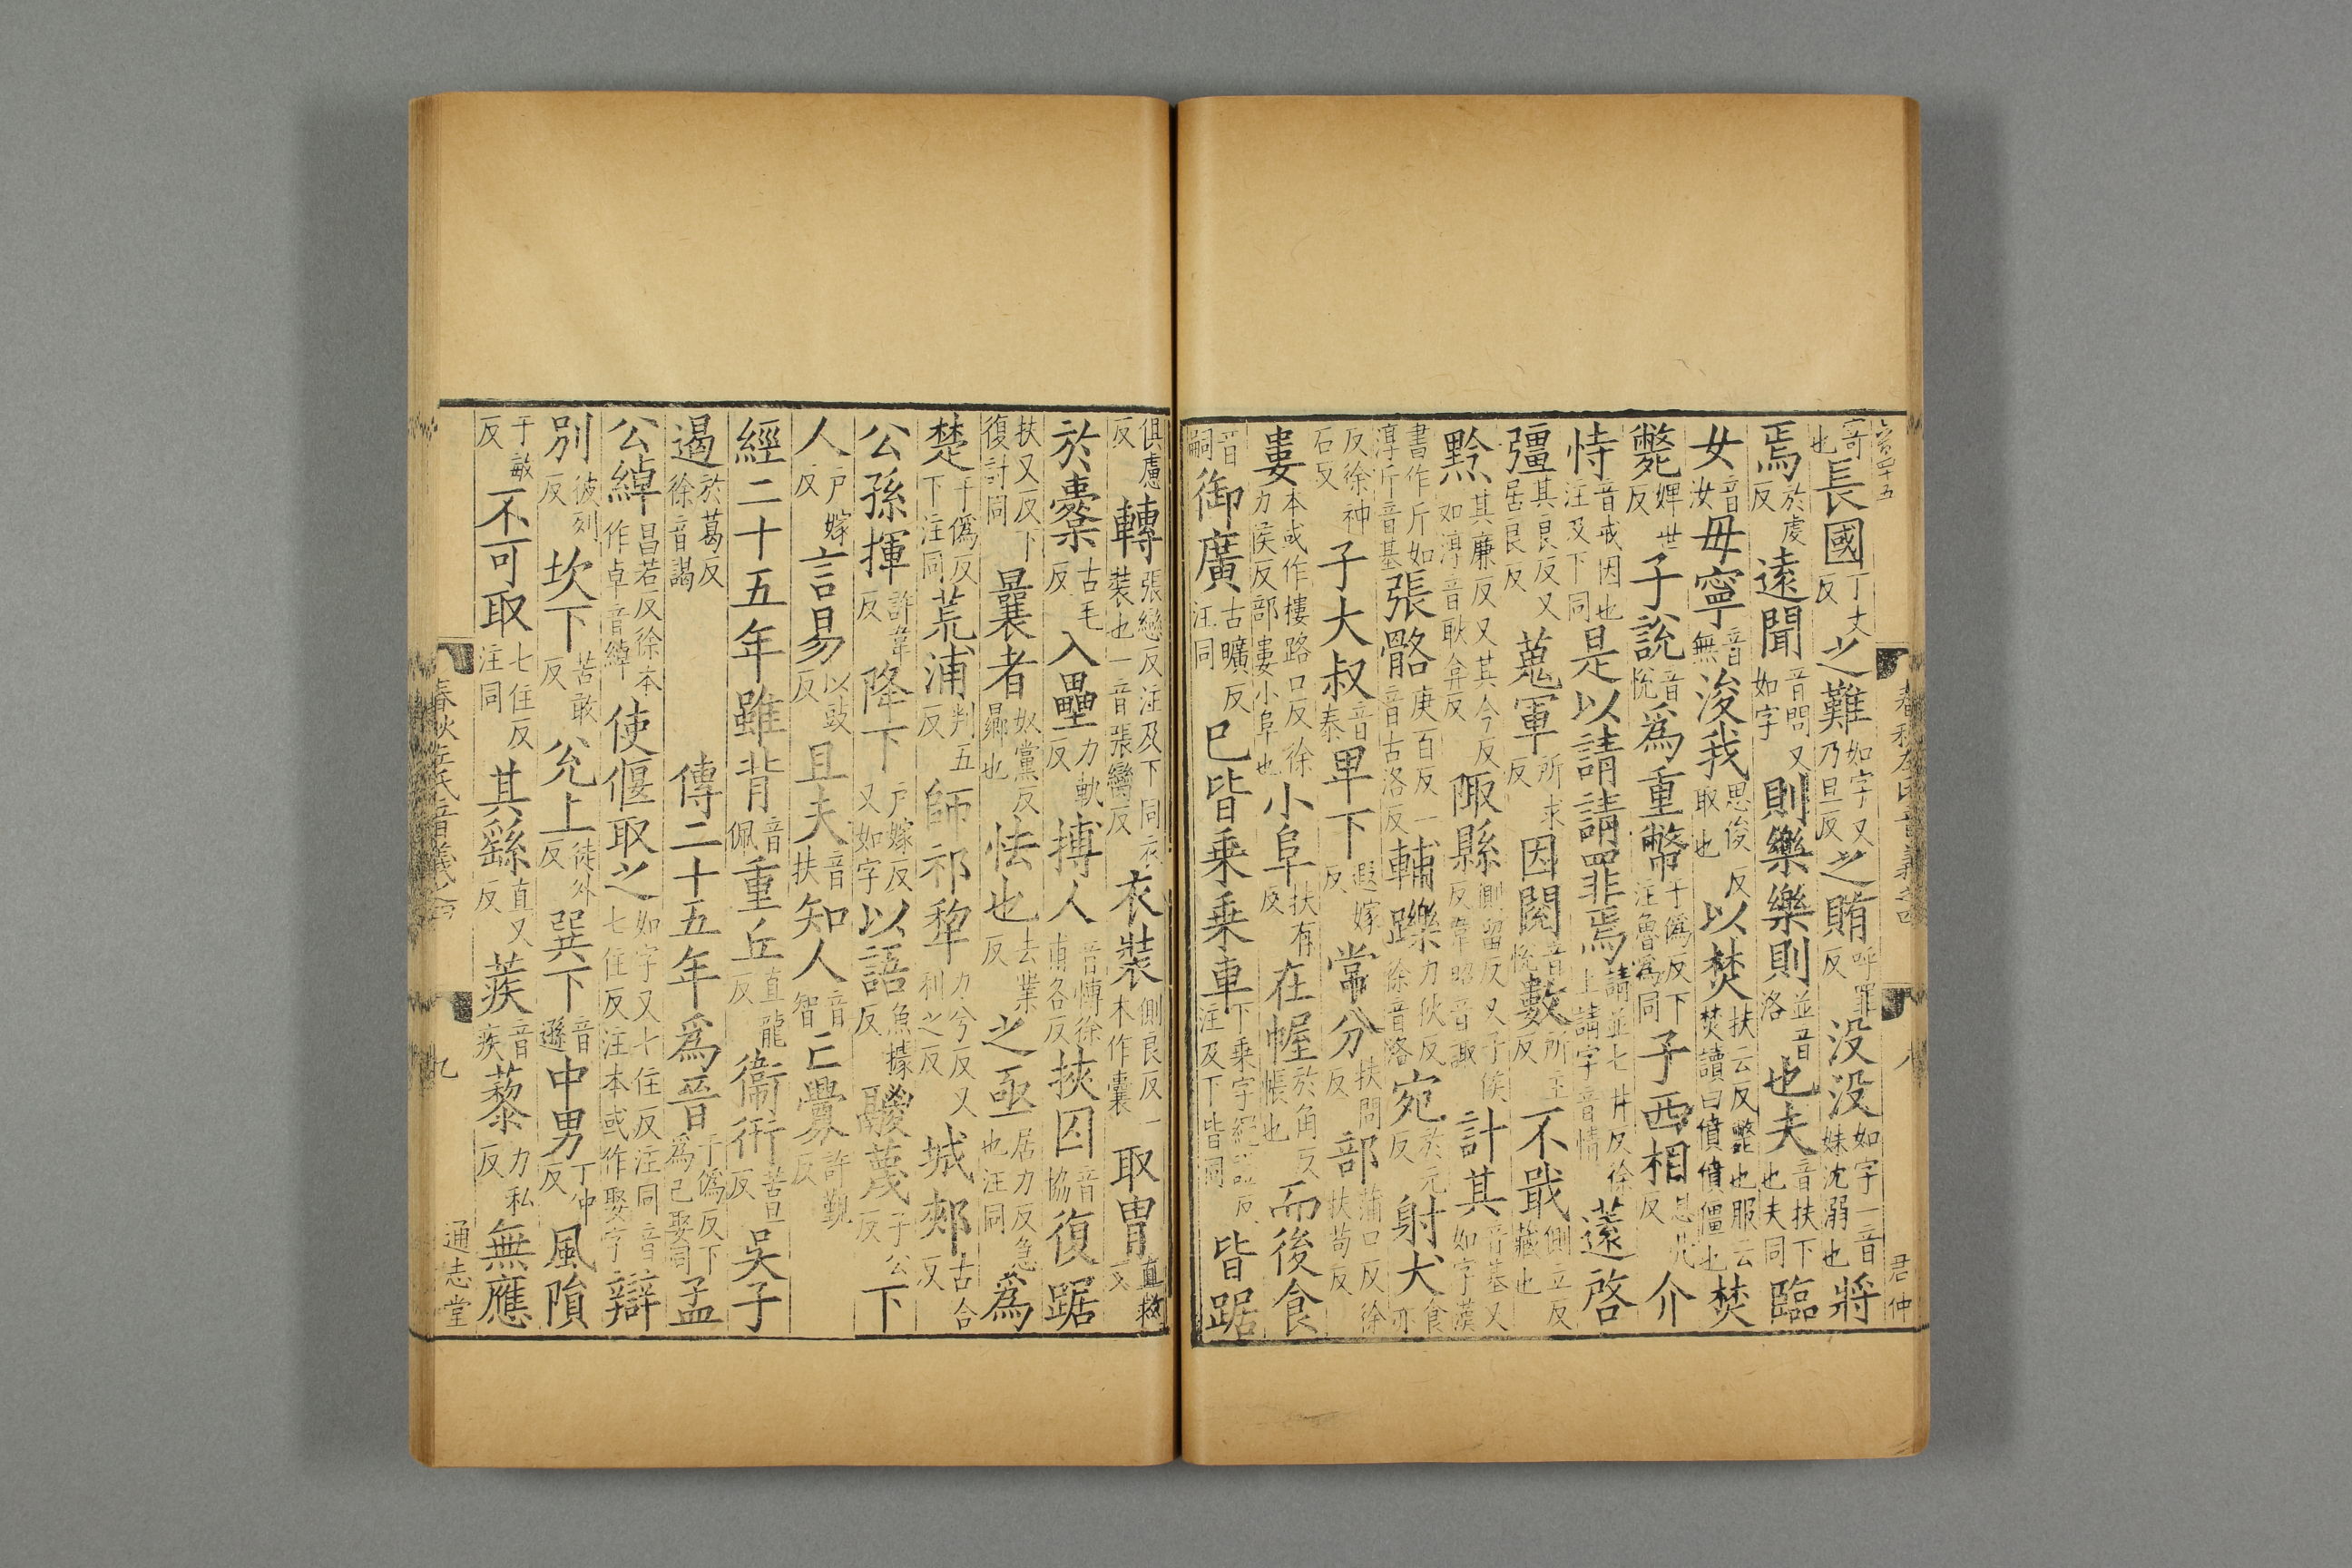 寄也長國丁丈反之難如字又乃旦反之賄呼罪反没没如字一音妹沈溺也將
焉於虔反遠聞音問又如字則樂樂則並音洛也夫音扶下也夫同臨
女音汝毋寧音無浚我思俊反取也以焚扶云反斃也服云焚讀曰僨僨僵也焚
斃婢世反子說音悅爲重幣于僞反下注魯爲同子西相息亮反介
恃音戒因也注及下同是以請請罪焉請並七井反徐上請字音情薳啓
彊其良反又居良反蒐軍所求反因閱音悅數所主反不戢側立反藏也
黔其廉反又其今反如淳音耿弇反陬縣側留反又子侯反韋昭音諏計其如字漢音基又
書作斤如淳斤音基張骼庚百反一音古洛反輔躒力狄反徐音洛宛於元反射犬食亦
反徐神石反子大叔音泰卑下遐嫁反常分扶問反部蒲口反徐扶苟反
婁本或作樓路口反徐力侯反部婁小阜也小阜扶有反在幄於角反帳也而後食
音嗣御廣古曠反注同已皆乗乗車下乗字繩證反注及下皆同皆踞
春秋左氏音義之四
八
君仲
俱慮反轉張戀反注及下同衣裝也一音張臠反衣裝側良反一本作囊取胄直救反
於櫜古毛反入壘力軌反搏人音博徐甫各反挾囚音協復踞
扶又反下復計同曩者奴黨反曏也怯也去業反之亟居力反急也注同爲
楚于僞反下注同荒浦判五反師祁犂力兮反又利之反城郟古合反
公孫揮許韋反降下戶嫁反又如字以語魚據反鬷蔑子公反下
人戶嫁反言易以豉反且夫音扶知人音智亡釁許覲反
經二十五年雖背音佩重丘直龍反衞衎苦旦反吳子
遏於葛反徐音謁傳二十五年爲晉于僞反下爲己娶同孟
公綽昌若反徐本作卓音綽使偃取之如字又七住反注同音七住反注本或作娶字辯
別彼列反坎下苦敢反兊上徒外反巽下音遜中男丁仲反風隕
于敏反不可取七住反注同其繇直又反蒺音疾藜力私反無應
春秋左氏音義之四
九
通志堂